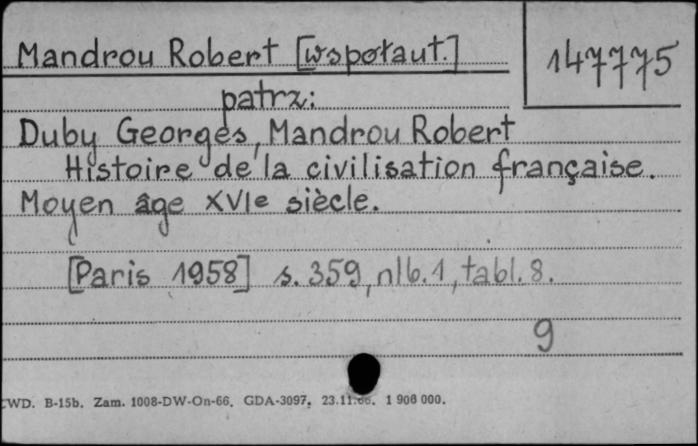 Mandrou Robert [współaut.]
147775
patrz:
Duby Georges, Mandrou Robert
Histoire de la civilisation française.
Moyen âge XVIe siècle.
[Paris 1958] s. 359, nlb. 1, tabl. 8.
9
CWD. B-15b. Zam. 1008-DW-On-66. GDA-3097. 23.11.66. 1 900 000.